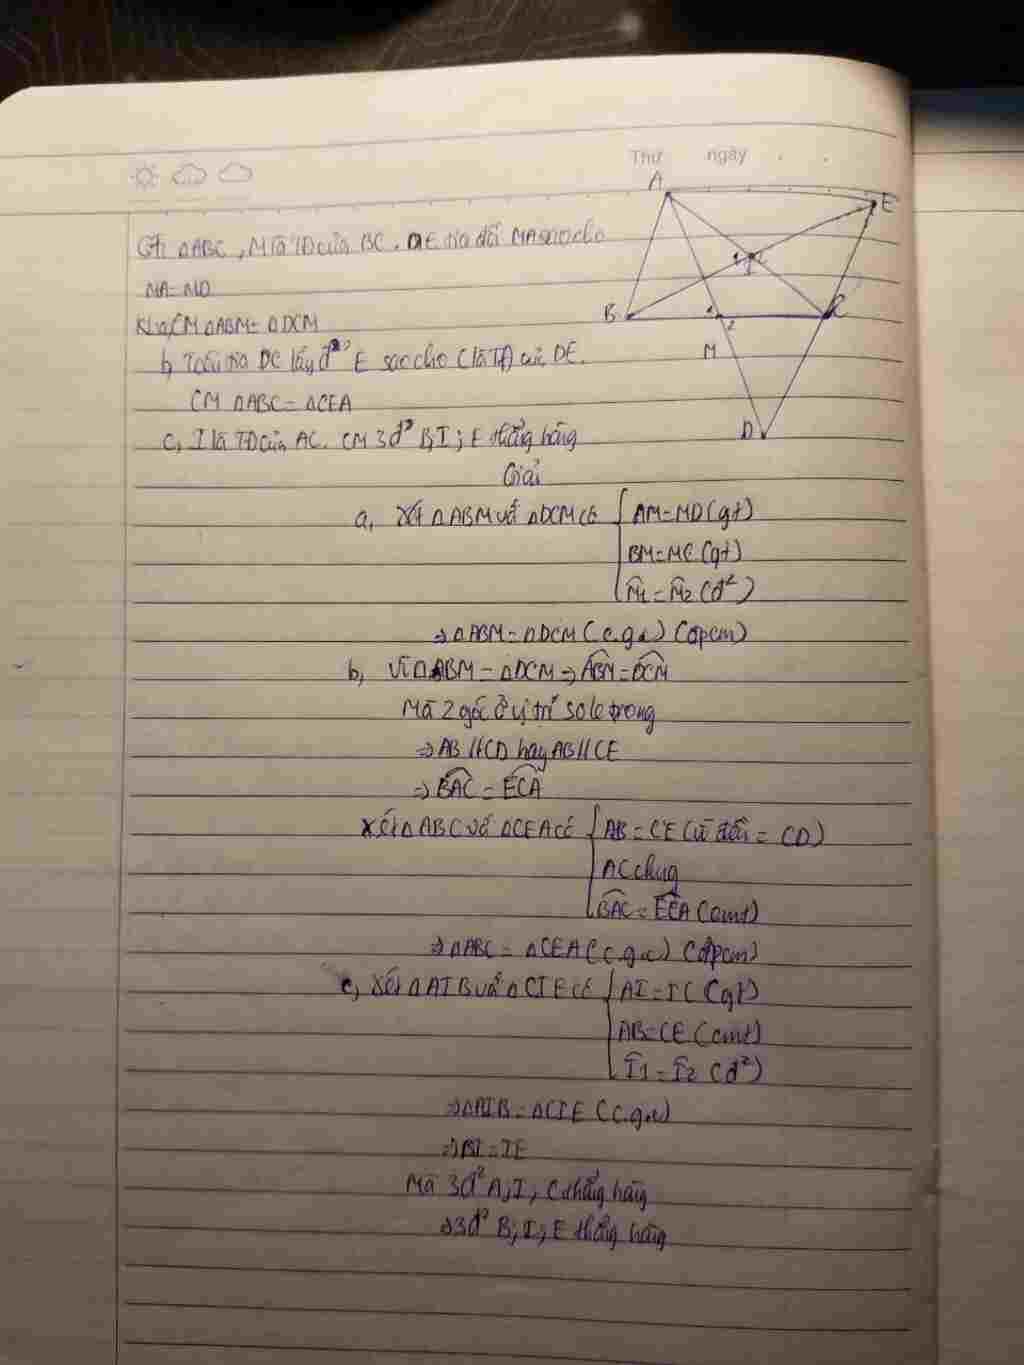 Thứ ngày . .
A
E
Gt: △ABC, M là TĐ của BC. tia đối MA sao cho
MA = MD
KL a, CM △ABM = △DCM
B
C
1
2
M
b, Trên tia DC lấy đ² E sao cho C là TĐ của DE.
CM △ABC = △CEA
c, I là TĐ của AC. CM 3đ² B, I, E thẳng hàng
D
Giải
a, Xét △ABM và △DCM có { AM = MD (gt)
BM = MC (gt)
M̂1 = M̂2 (đ²)
⇒ △ABM = △DCM (c.g.c) (đpcm)
b, Vì △ABM = △DCM ⇒ ABM = DCM
Mà 2 góc ở vị trí so le trong
⇒ AB // CD hay AB // CE
⇒ BAC = ECA
Xét △ABC và △CEA có { AB = CE (vì đều = CD)
AC chug
BAC = ECA (cmt)
⇒ △ABC = △CEA (c.g.c) (đpcm)
c, Xét △AIB và △CIE có { AI = IC (gt)
AB = CE (cmt)
Î1 = Î2 (đ²)
⇒ △AIB = △CIE (c.g.c)
⇒ BI = IE
Mà 3đ² A, I, C thẳng hàng
⇒ 3đ² B, I, E thẳng hàng